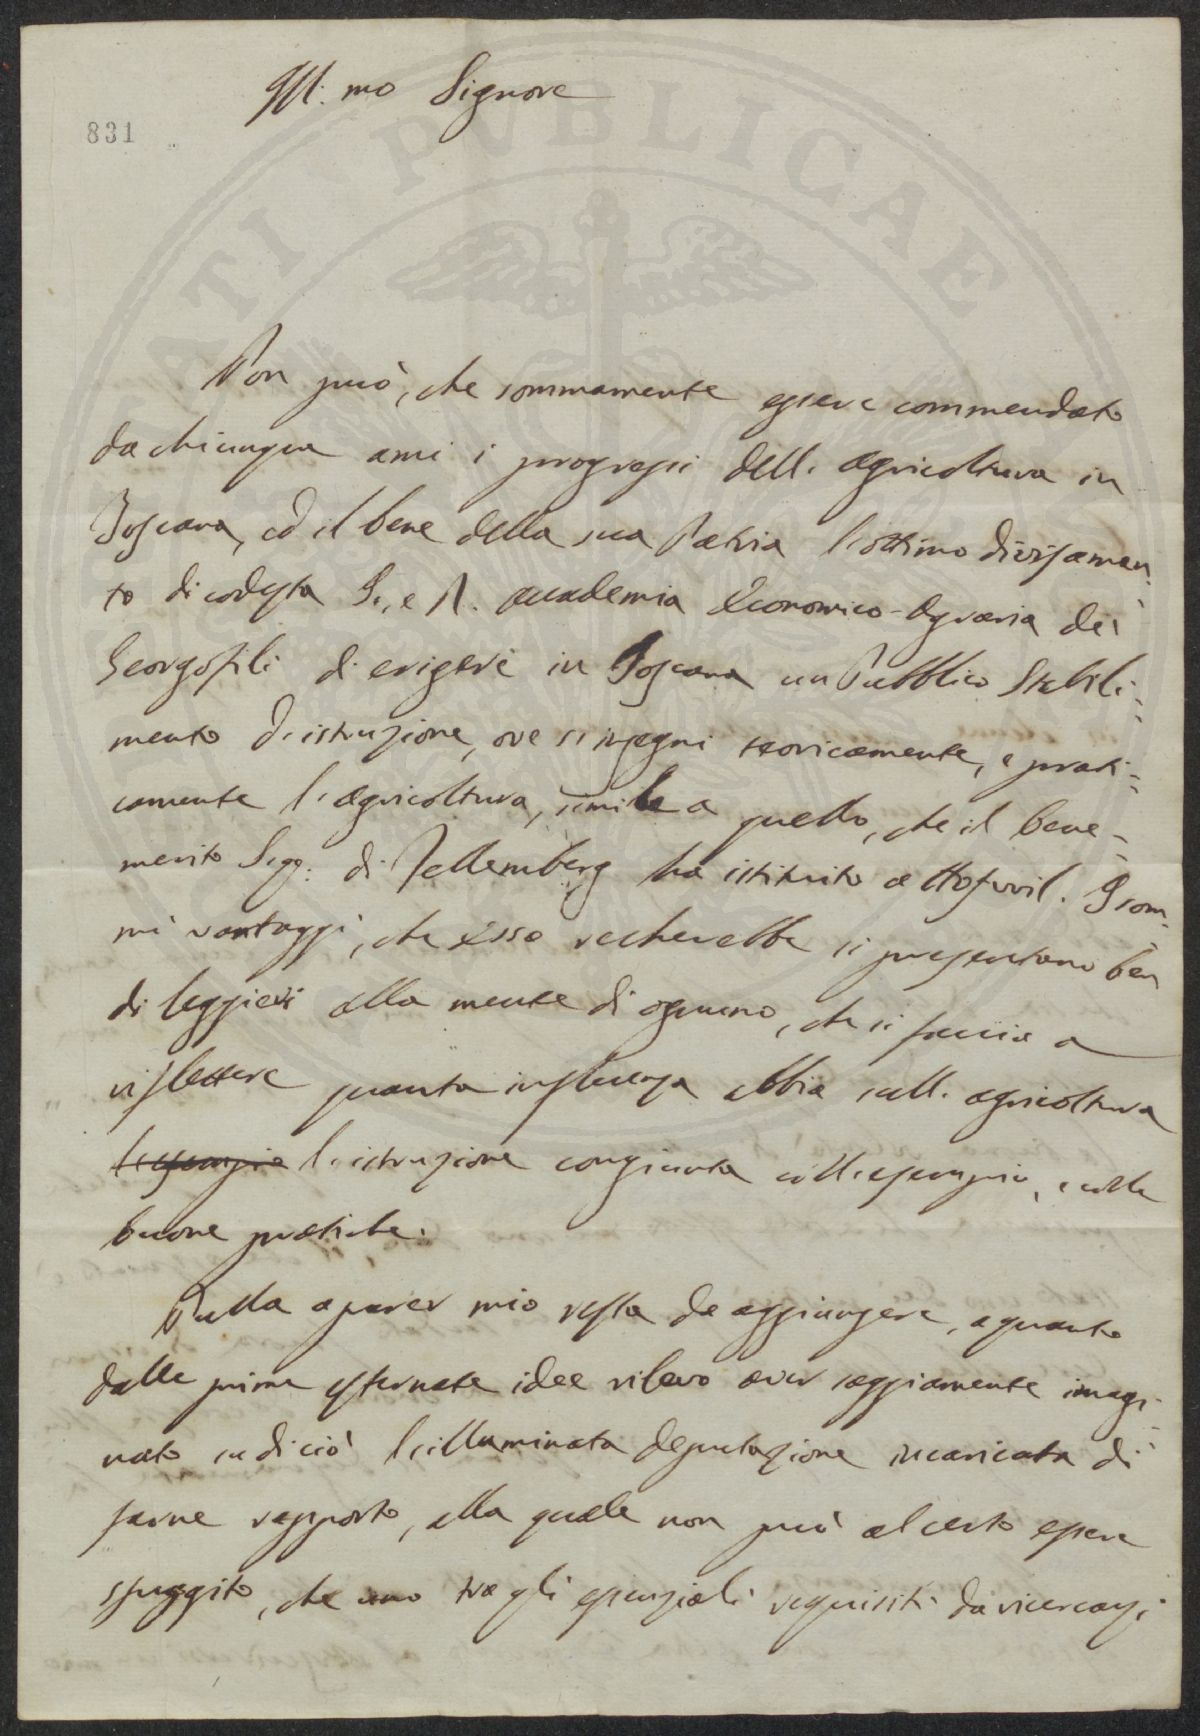 Ill:mo Signore
831
Non può, che sommamente essere commendato
da chiunque ami i progressi dell'agricoltura in
Toscana, ed il bene della sua Patria l'ottimo divisamen=
to di codesta I., e R. Accademia Economico-Agraria dei
Georgofili di erigere in Toscana un Pubblico Stabili=
mento d'istruzione, ove s'insegni teoricamente, e prati=
camente l'agricoltura, simile a quello, che il bene=
merito Sig:r di Fellemberg ha istituito a Hofwil. I som=
mi vantaggi, che esso recherebbe si presentano ben
di leggieri alla mente di ognuno, che si faccia a
riflettere quanta influenza abbia sull'agricoltura
l'esempio l'istruzione congiunta coll'esempio, e colle
buone pratiche.
Nulla a parer mio resta da aggiungere, a quanto
dalle prime esternate idee rilevo aver saggiamente imagi=
nato su di ciò l'illuminata deputazione incaricata di
farne rapporto, alla quale non può al certo essere
sfuggito, che uno tra gli essenziali requisiti da ricercarsi
PUBLICAE